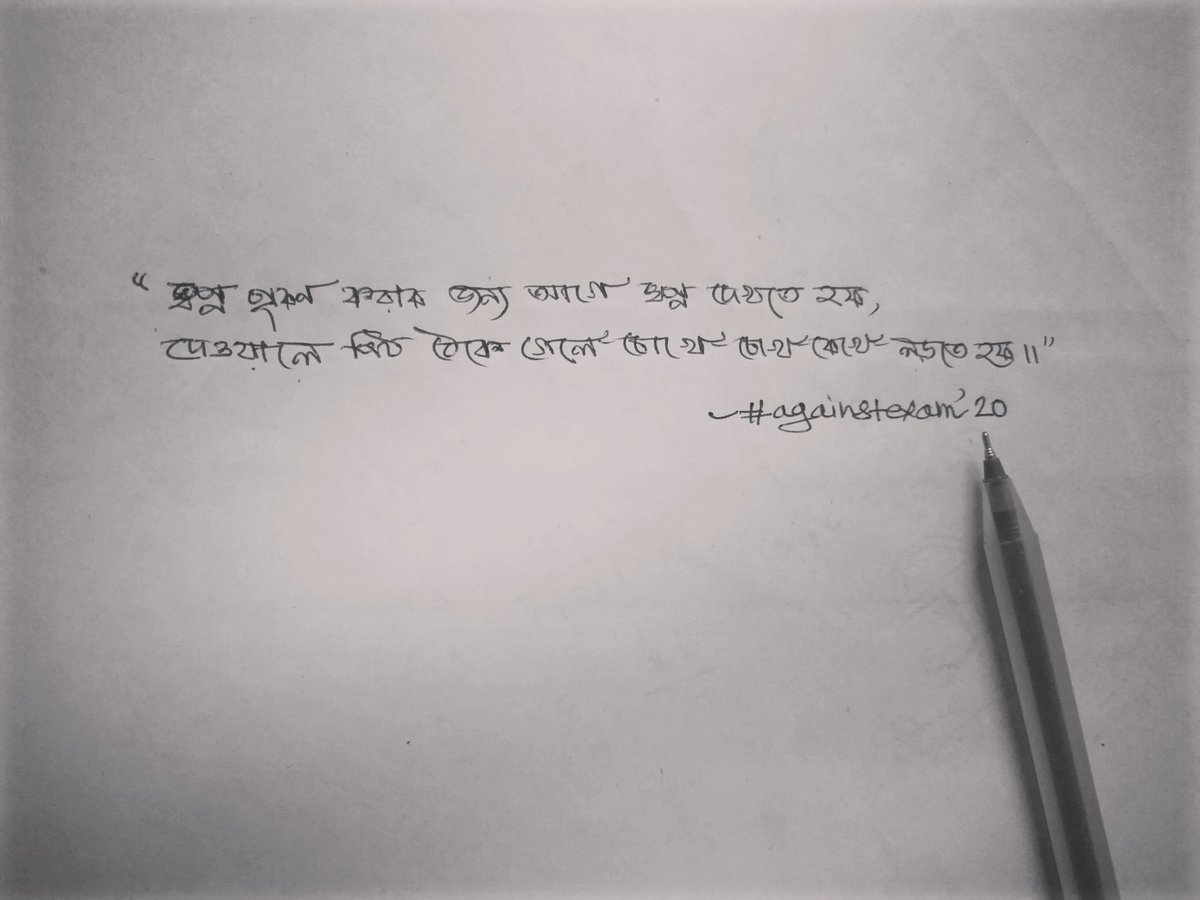 “স্বপ্ন পূরণ করার জন্য আগে স্বপ্ন দেখতে হয়,
দেওয়ালে পিঠ ঠেকে গেলে চোখে চোখ রেখে লড়তে হয়॥”
~#againstexam'20